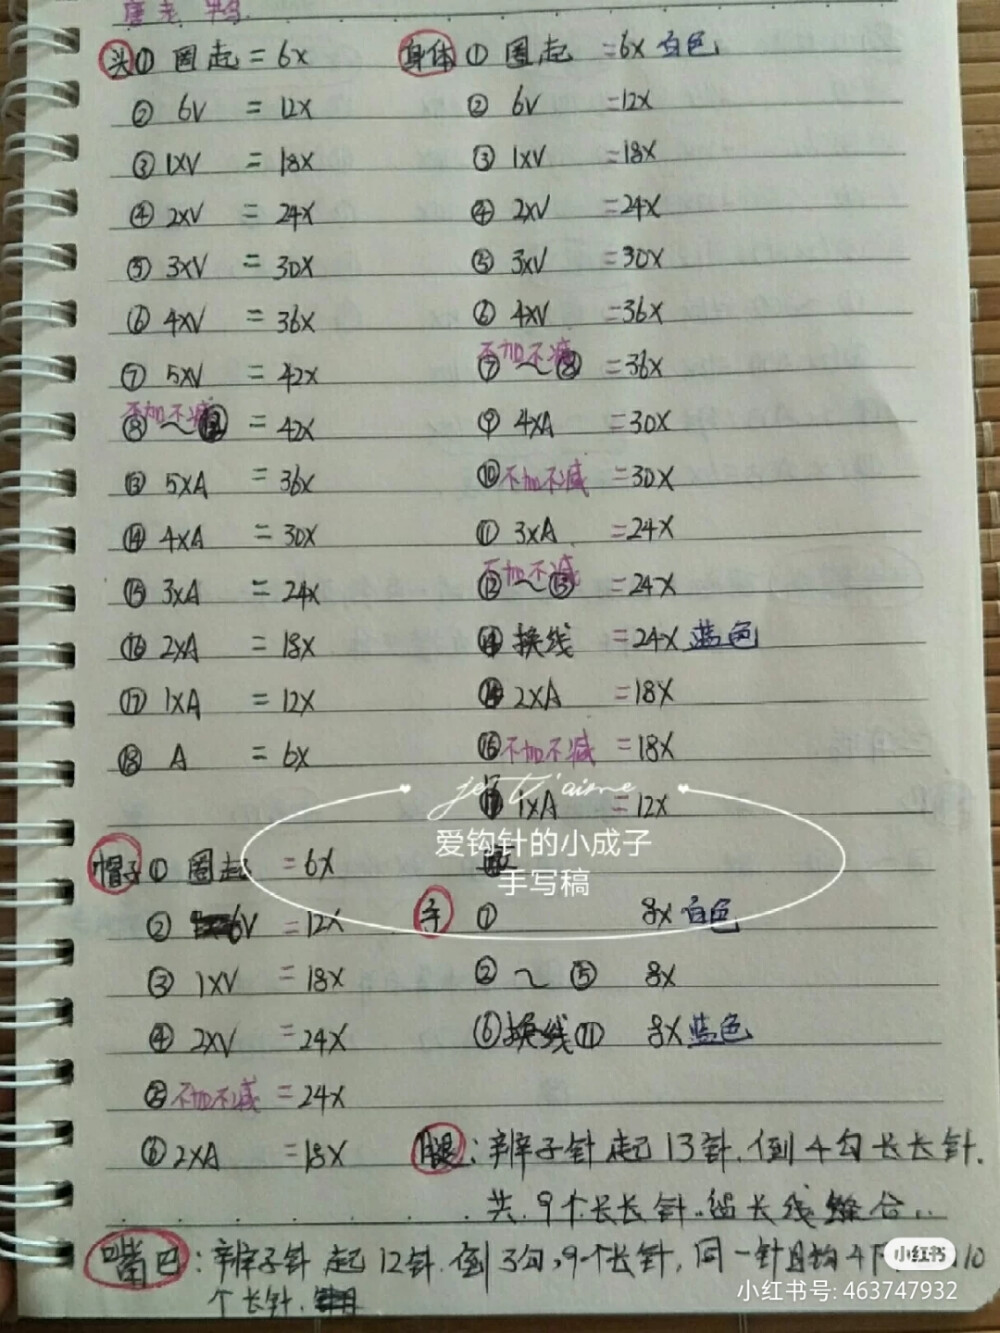 唐老鸭
头① 圈起 = 6X
② 6V = 12X
③ 1XV = 18X
④ 2XV = 24X
⑤ 3XV = 30X
⑥ 4XV = 36X
⑦ 5XV = 42X
不加不减
⑧~⑫ = 42X
⑬ 5XA = 36X
⑭ 4XA = 30X
⑮ 3XA = 24X
⑯ 2XA = 18X
⑰ 1XA = 12X
⑱ A = 6X
帽子① 圈起 = 6X
② 6V = 12X
③ 1XV = 18X
④ 2XV = 24X
⑤ 不加不减 = 24X
⑥ 2XA = 18X
身体① 圈起 = 6X 白色
② 6V = 12X
③ 1XV = 18X
④ 2XV = 24X
⑤ 3XV = 30X
⑥ 4XV = 36X
不加不减
⑦~⑧ = 36X
⑨ 4XA = 30X
⑩ 不加不减 = 30X
⑪ 3XA = 24X
不加不减
⑫~⑬ = 24X
⑭ 换线 = 24X 蓝色
2XA = 18X
⑯ 不加不减 = 18X
⑰ 1XA = 12X
je t'aime
爱钩针的小成子
手写稿
手 ① 8X 白色
②~⑤ 8X
⑥换线⑪ 8X 蓝色
腿：辫子针起13针.倒4勾长长针.
共9个长长针..留长线缝合..
嘴巴：辫子针起12针.倒3勾,9个长针,同一针目钩4下 10
个长针.
小红书
小红书号: 463747932